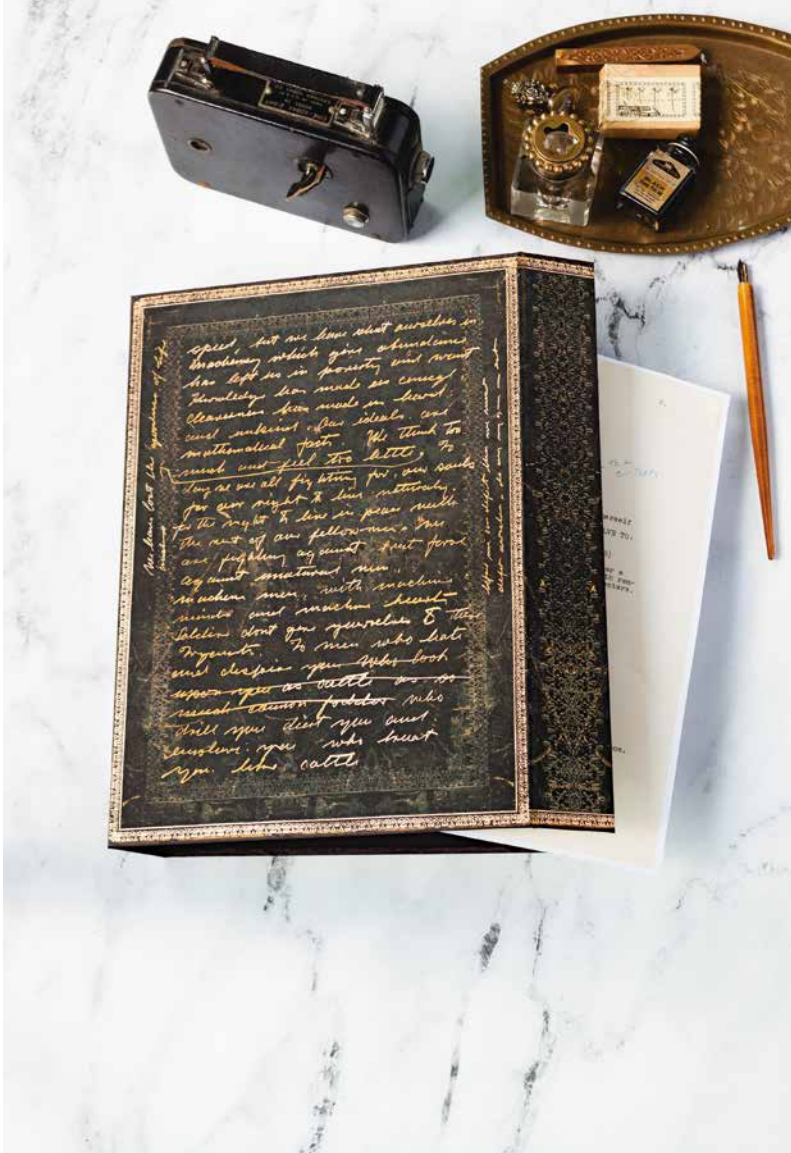 speed, but we have shut ourselves in
machinery which gives abundance
has left us in poverty and want
Knowledge has made us
cleverness has made us hard
and unkind. Our ideals are
mathematical facts. We think too
much and feel too little. To
day we are all fighting for our souls
for our right to live naturally,
for the right to live in peace with
the rest of our fellow-men. We
are fighting against great force
against unnatural men.
machine men, with machine
minds and machine hearts
Soldiers dont give yourselves to the
Tyrants. To men who hate
and despise you who look
upon you as cattle as so
much cannon fodder who
drill you diet you and
enslave you who treat
you like cattle
We have lost the of life